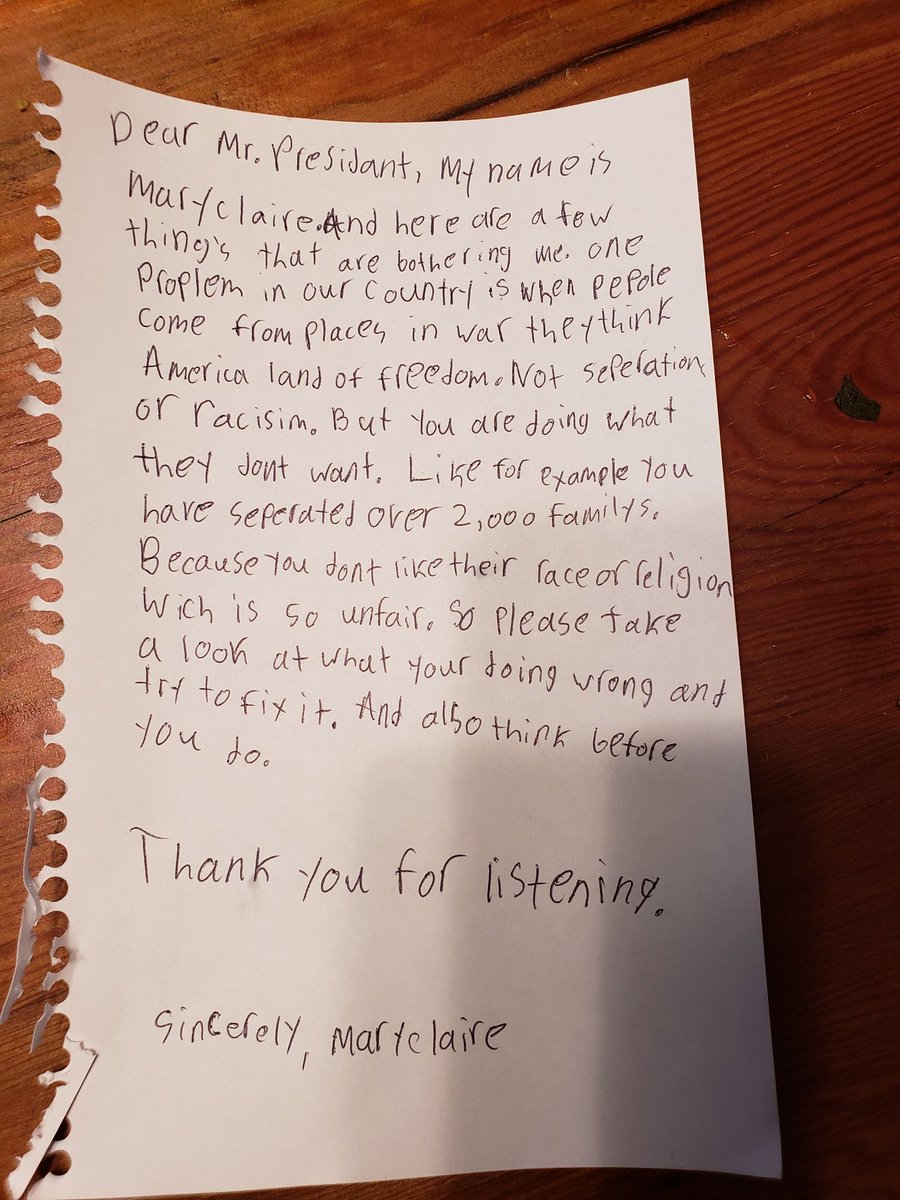 Dear Mr. Presidant, My name is
Maryclaire. And here are a few
thing's that are bothering me. one
Proplem in our country is when pepole
come from places in war they think
America land of freedom. Not seperation
or racisim. But you are doing what
they dont want. Like for example you
have seperated over 2,000 familys.
Because you dont like their race or religion
Wich is so unfair. So please take
a look at what your doing wrong and
try to fix it. And also think before
you do.
Thank you for listening.
Sincerely, Maryclaire